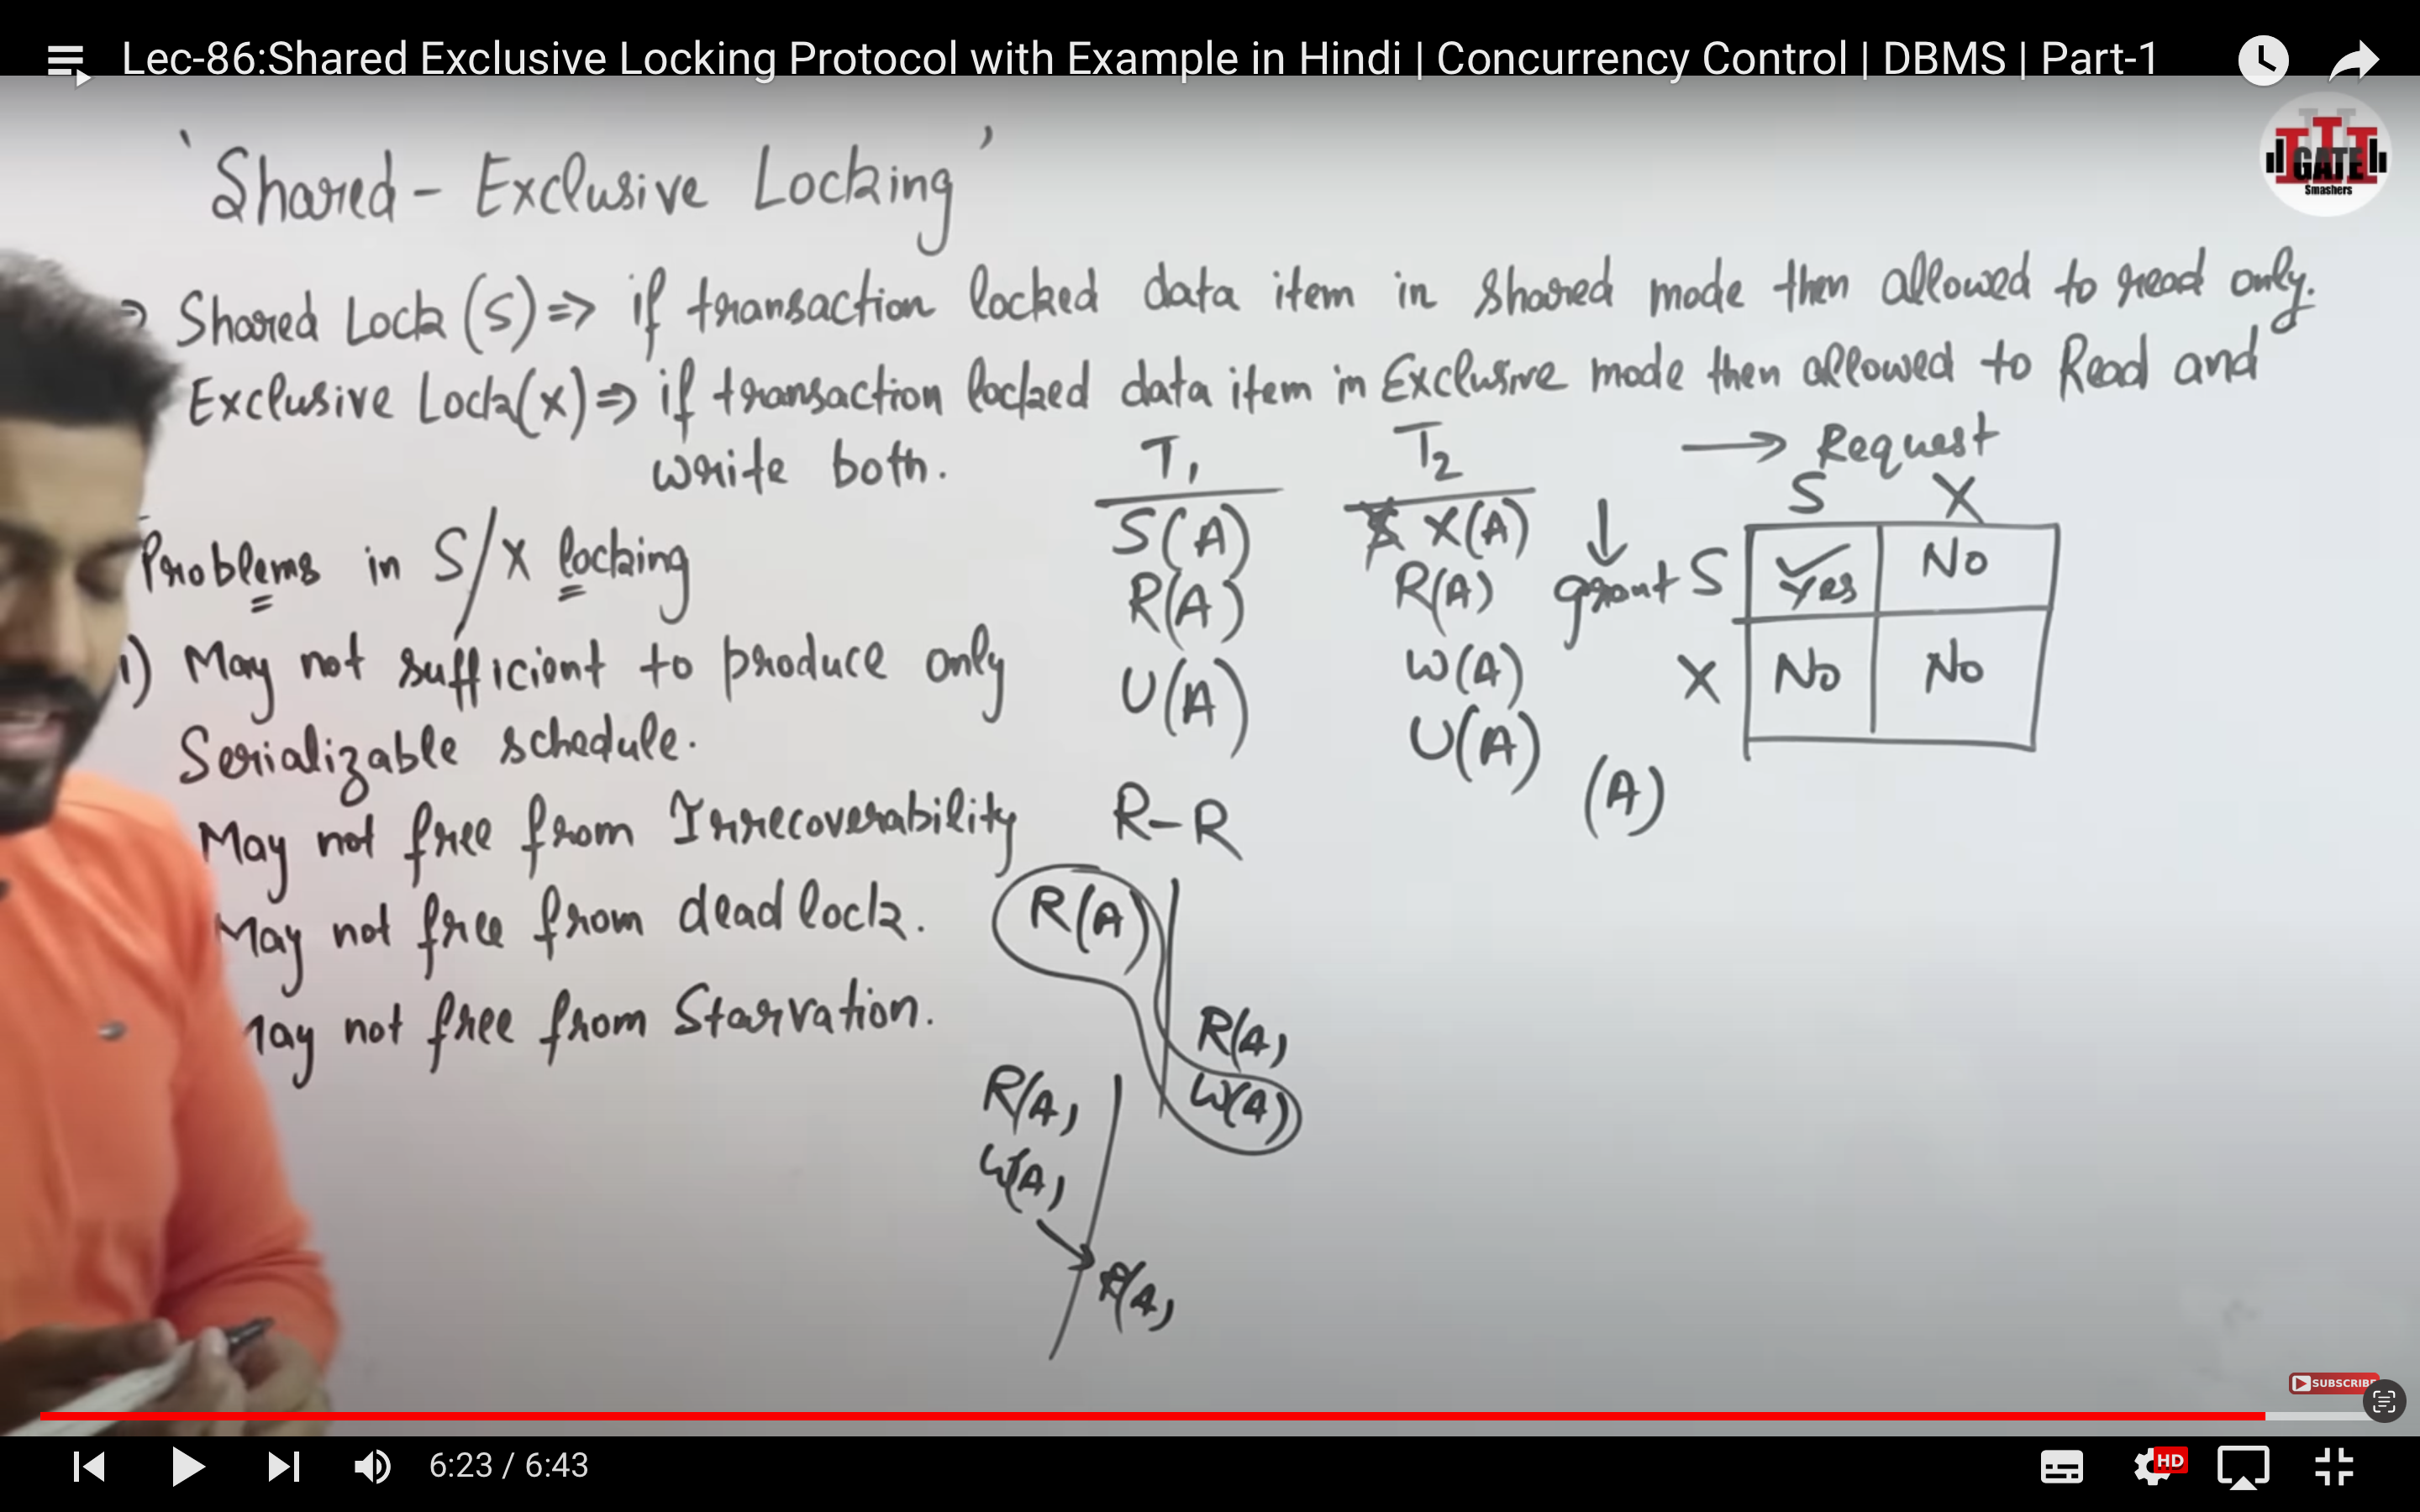 Lec-86:Shared Exclusive Locking Protocol with Example in Hindi | Concurrency Control | DBMS | Part-1
GATE
Smashers
'Shared - Exclusive Locking'
Shared Lock (S) => if transaction locked data item in shared mode then allowed to read only.
Exclusive Lock(X) => if transaction locked data item in Exclusive mode then allowed to Read and
write both.
Problems in S/X locking
1) May not sufficient to produce only
Serializable schedule.
May not free from Irrecoverability
May not free from deadlock.
May not free from Starvation.
T1 T2
S(A) X(A)
R(A) R(A)
U(A) W(A)
U(A)
(A)
→ Request
S X
↓ grant S ✓ Yes No
X No No
R-R
R(A)
R(A)
W(A)
R(A)
W(A)
R(A)
SUBSCRIBE
6:23 / 6:43
HD